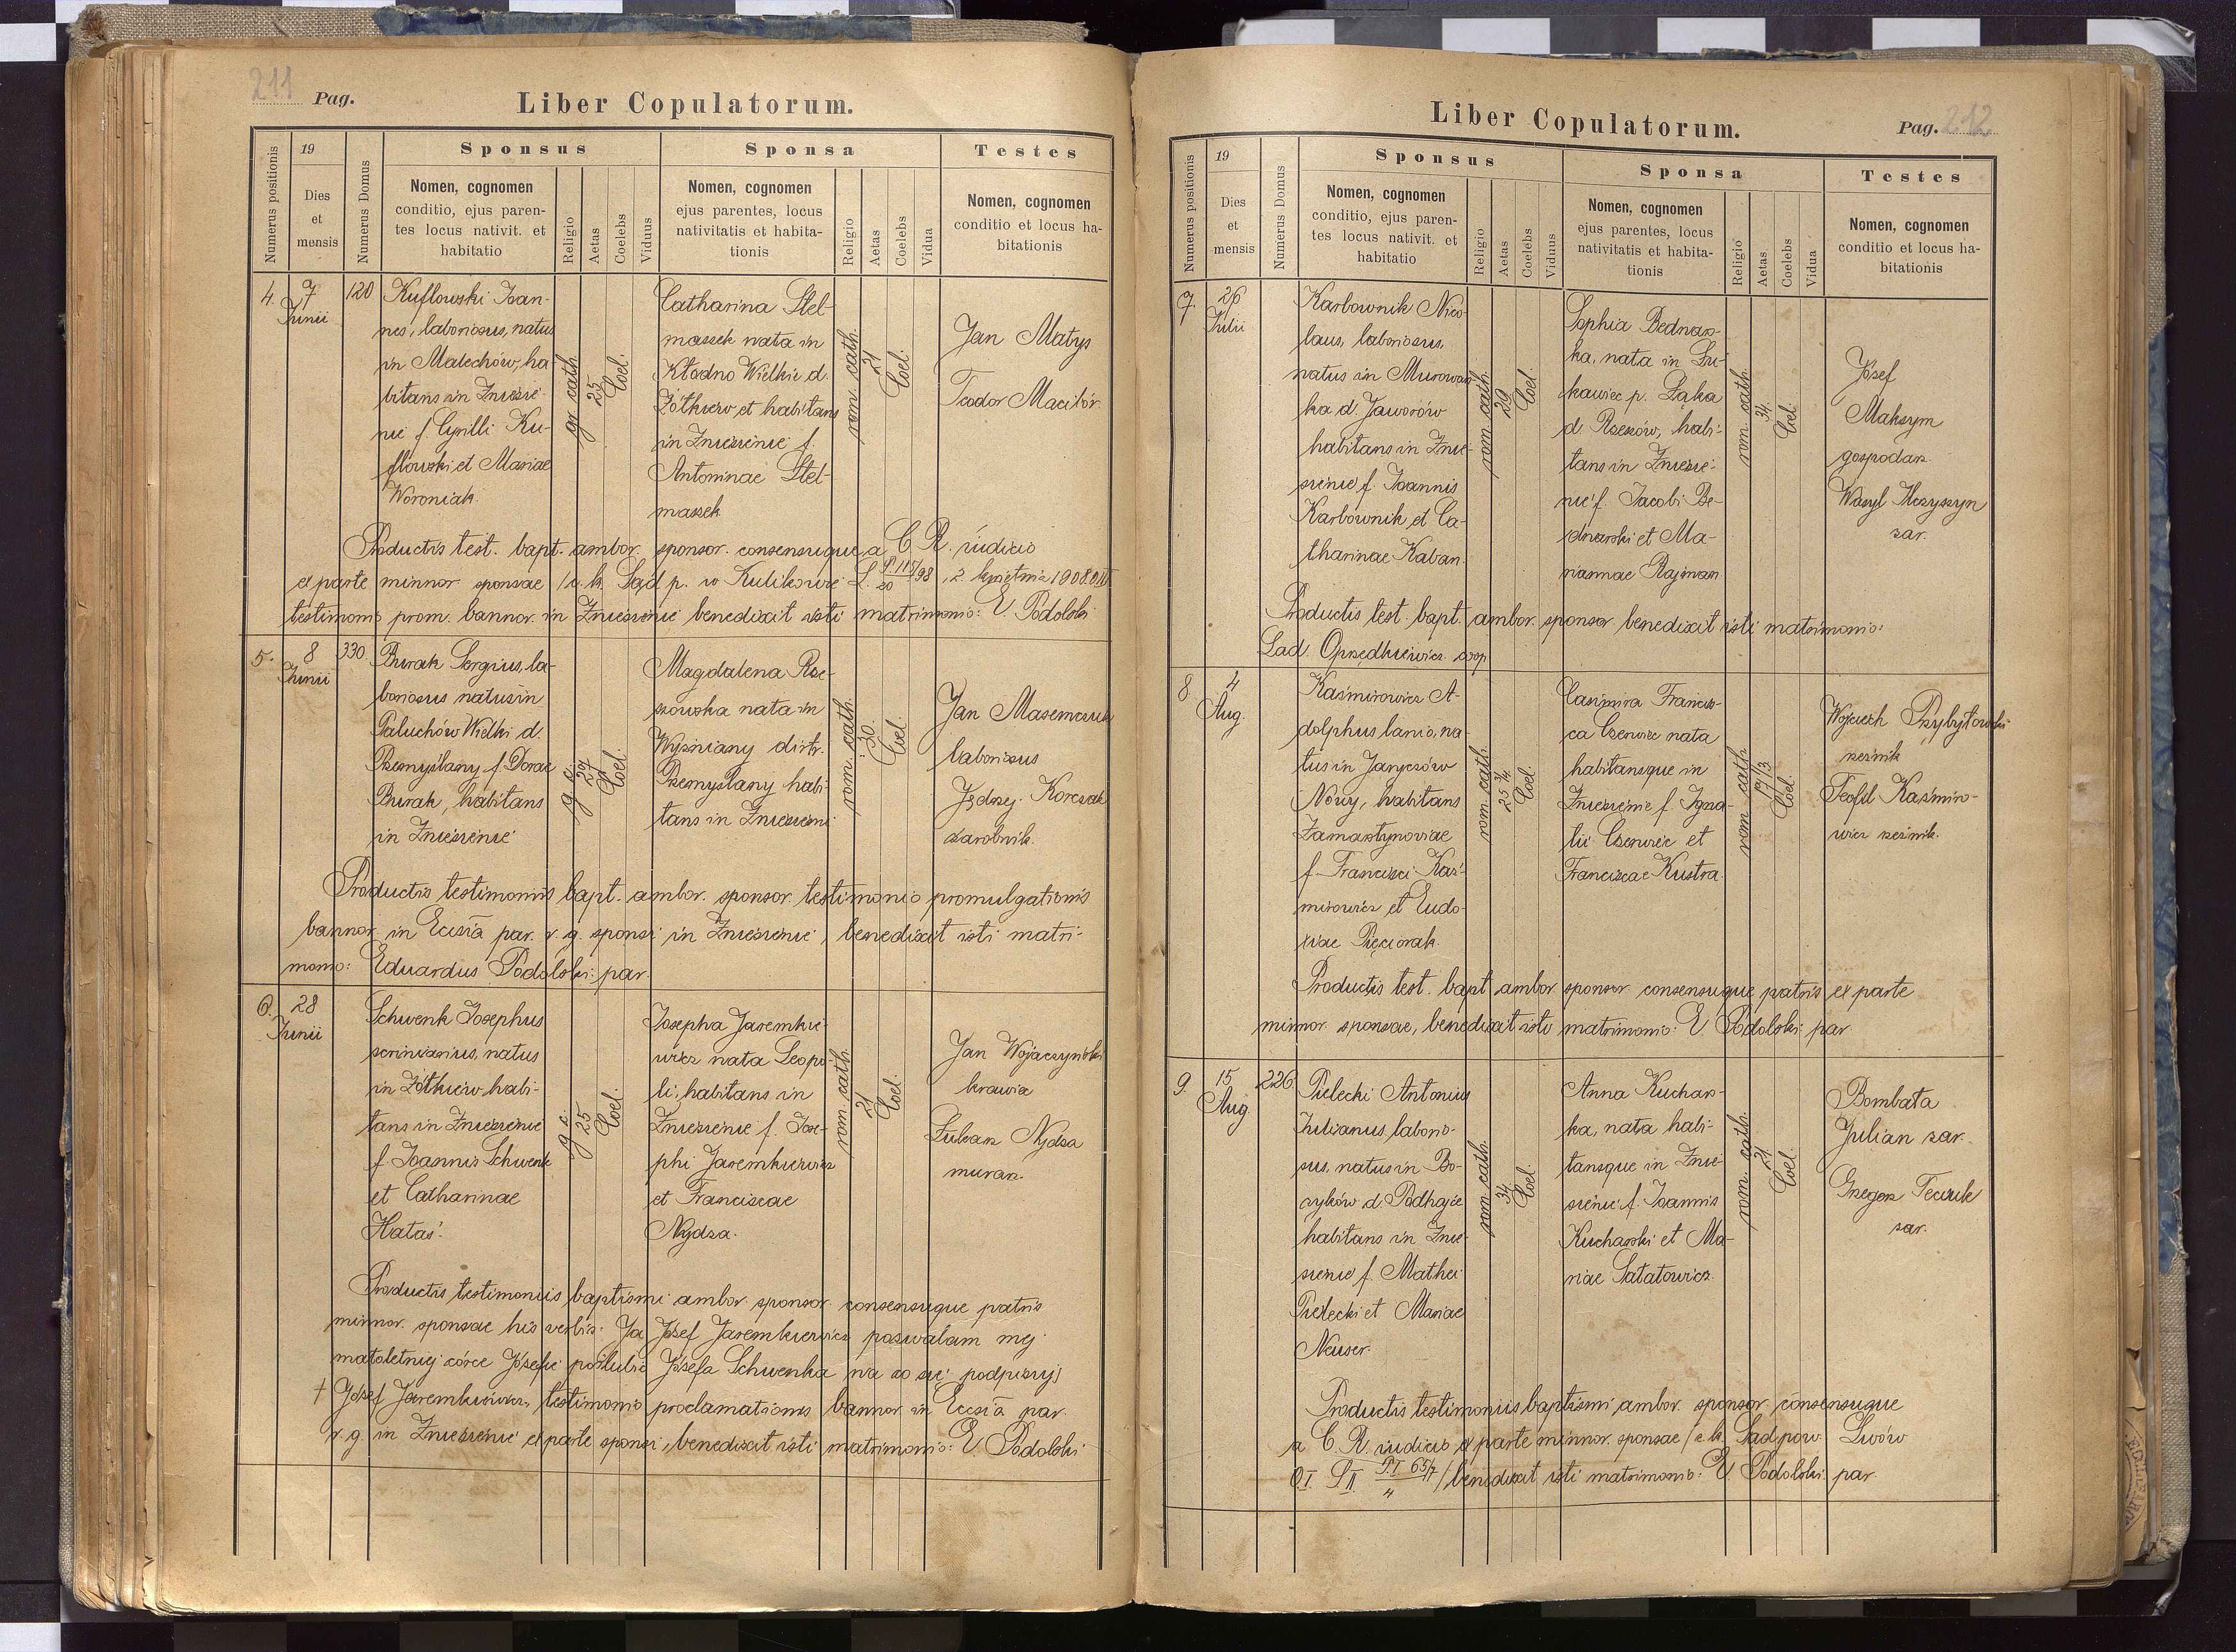 211 Pag.
Liber Copulatorum.
Numerus positionis
19
Dies
et
mensis
Numerus Domus
Sponsus
Nomen, cognomen
conditio, ejus paren-
tes locus nativit. et
habitatio
Religio
Aetas
Coelebs
Viduus
Sponsa
Nomen, cognomen
ejus parentes, locus
nativitatis et habita-
tionis
Religio
Aetas
Coelebs
Vidua
Testes
Nomen, cognomen
conditio et locus ha-
bitationis
4.
7
Junii
120
Kuflowski Joan-
nes, laboriosus, natus
in Malechów, ha-
bitans in Zniesie-
nie f. Cyrilli Ku-
flowski et Mariae
Woroniak.
gr. cath.
25
Coel.
Catharina Stel-
massek nata in
Kłodno Wielkie d.
Żółkiew et habitans
in Zniesienie f.
Antoninae Stel-
massek
rom. cath.
21
Coel.
Jan Matys
Teodor Macibór
Productis test. bapt. ambor. sponsor. consensuque a C. R. iudicio
ex parte minnor. sponsae /c. k. Sąd p. w Kulikowie L. 98, 2 kwietnia 1908
testimonio prom. bannor. in Zniesienie benedixit isti matrimonio: E. Podolski
5.
8
Junii
330.
Burak Sergius, la-
boriosus natus in
Paluchów Wielki d.
Przemyślany f. Dorae
Burak, habitans
in Zniesienie
g. c.
27
Coel.
Magdalena Rze-
szowska nata in
Wyżniany distr.
Przemyślany habi-
tans in Zniesieni
rom. cath.
30.
Coel.
Jan Masemczuk
laboriosus
Jędrzej Korczak
zarobnik.
Productis testimoniis bapt. ambor. sponsor. testimonio promulgationis
bannor. in Eccsia par. r. g. sponsi in Zniesienie, benedixit isti matri-
monio: Eduardus Podolski par.
6.
28
Junii
Schwenk Josephus
scriniarius, natus
in Żółkiew, habi-
tans in Zniesienie
f. Joannis Schwenk
et Catharinae
Hałas.
g. c.
25
Coel.
Josepha Jaremkie-
wicz nata Leopo-
li, habitans in
Zniesienie f. Jose-
phi Jaremkiewicz
et Franciscae
Nydza.
rom. cath.
21
Coel.
Jan Wojaczyński
krawiec
Łukasz Nydza
murarz.
Productis testimoniis baptismi ambor. sponsor. consensuque patris
minnor. sponsae his verbis: Ja Józef Jaremkiewicz pozwalam mej
małoletniej córce Józefie poślubić Józefa Schwenka, na co się podpisuję
† Józef Jaremkiewicz, testimonio proclamationis bannor. in Eccsia par.
r. g. in Zniesienie ex parte sponsi, benedixit isti matrimonio: E. Podolski
Liber Copulatorum.
Pag. 212
Numerus positionis
19
Dies
et
mensis
Numerus Domus
Sponsus
Nomen, cognomen
conditio, ejus paren-
tes locus nativit. et
habitatio
Religio
Aetas
Coelebs
Viduus
Sponsa
Nomen, cognomen
ejus parentes, locus
nativitatis et habita-
tionis
Religio
Aetas
Coelebs
Vidua
Testes
Nomen, cognomen
conditio et locus ha-
bitationis
7.
26
Julii
Karbownik Nico-
laus, laboriosus,
natus in Murowan-
ka d. Jaworów
habitans in Znie-
sienie f. Joannis
Karbownik et Ca-
tharinae Kaban
rom. cath.
29
Coel.
Sophia Bednar-
ka, nata in Łu-
kawiec p. Łąka
d. Rzeszów, habi-
tans in Zniesie-
nie f. Jacobi Be-
dnarski et Ma-
riannae Rajman
rom. cath.
34.
Coel.
Józef
Maksym
gospodarz
Wasyl Ilczyszyn
zar.
Productis test. bapt. ambor. sponsor. benedixit isti matrimonio:
Lad. Oprzędkiewicz coop.
8.
4
Aug.
Kaźmirowicz A-
dolphus lanio, na-
tus in Jaryczów
Nowy, habitans
Zamarstynoviae
f. Francisci Kaź-
mirowicz et Eudo-
xiae Pięciorak.
rom. cath.
25 3/4
Coel.
Casimira Francis-
ca Czerwiec nata
habitansque in
Zniesienie f. Igna-
tii Czerwiec et
Franciscae Kustra
rom. cath.
17 1/3
Coel.
Wojciech Przybyłowski
rzeźnik
Teofil Kaźmiro-
wicz rzeźnik.
Productis test. bapt. ambor. sponsor. consensuque patris ex parte
minnor. sponsae, benedixit isto matrimonio: E. Podolski par.
9.
15
Aug.
226
Pielecki Antonius
Julianus, laborio-
sus, natus in Bo-
ryków d. Podhajce
habitans in Znie-
sienie f. Mathei
Pielecki et Mariae
Neuser.
rom. cath.
34
Coel.
Anna Kuchar-
ka, nata habi-
tansque in Znie-
sienie f. Joannis
Kucharski et Ma-
riae Sałatowicz
rom. cath.
21
Coel.
Bombata
Julian zar.
Grzegorz Teczuk
zar.
Productis testimoniis baptismi ambor. sponsor. consensuque
a C. R. iudicio ex parte minnor. sponsae /c. k. Sąd pow. Lwów
O. I. S. II. P. I 65/7 4 / benedixit isti matrimonio: E. Podolski par.